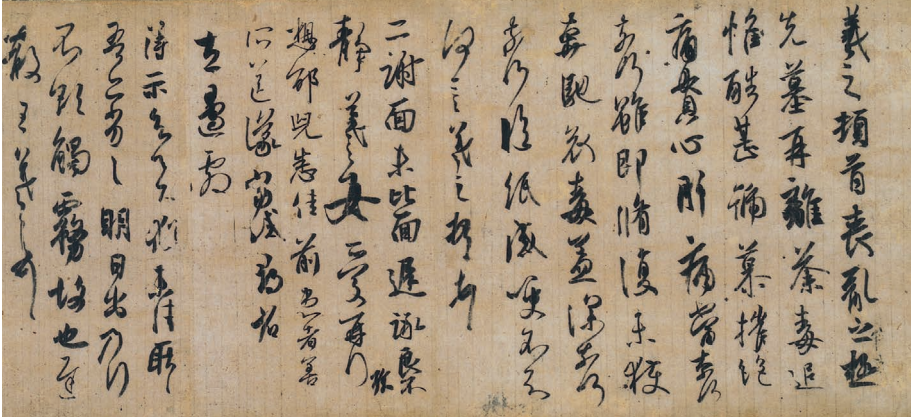 羲之頓首喪亂之極
先墓再離荼毒追
惟酷甚號慕摧絕
痛貫心肝痛當柰何
柰何雖即脩復未獲
奔馳哀毒益深柰何
柰何臨紙感哽不知
何言羲之頓首頓首
二謝面未比面遲詠良不
靜羲之女愛再拜
想邵兒悉佳前患者善
所送議當試尋省
左邊劇
得示知足下猶未佳耿耿
吾亦劣劣明日出乃行
不欲觸霧故也遲
散王羲之頓首